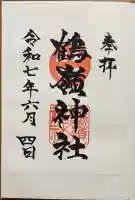 奉拝
鶴嶺神社
令和七年六月四日